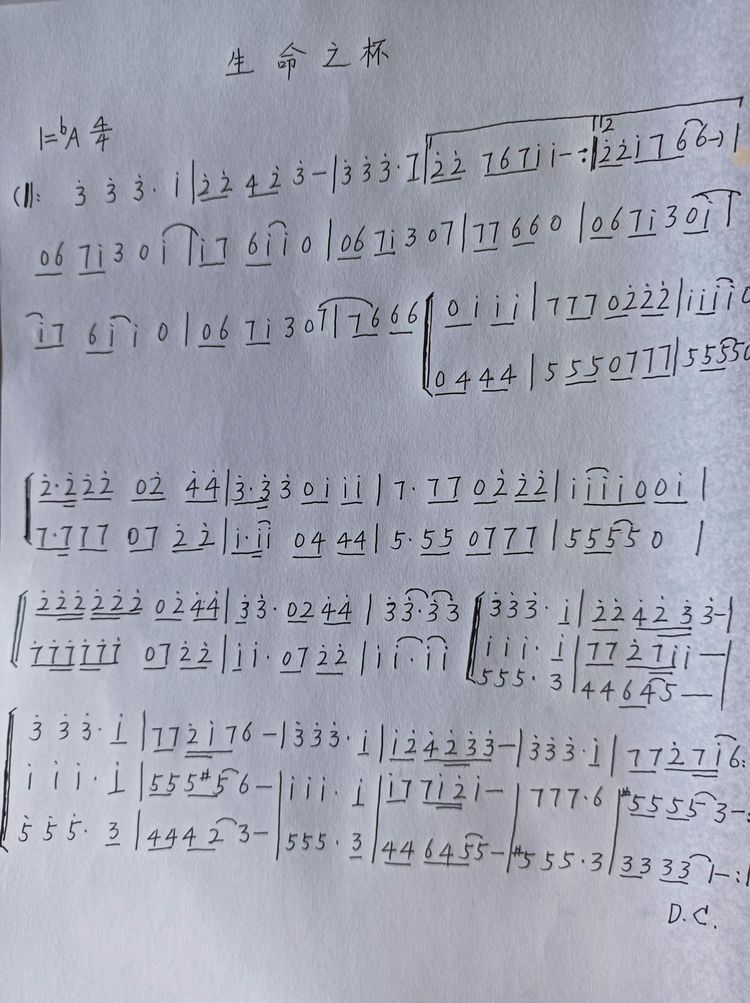 生命之杯
1=ᵇA 4/4
(‖: 3̇ 3̇ 3̇· i | 2̇ 2̇ 4 2̇ 3̇ – | 3̇ 3̇ 3̇· 7 | 2̇ 2̇ 7 6 7 i i – :‖ 2 2̇ 2̇ i 7 6 6 –) |
0 6 7 i 3 0 i | i 7 6 i i 0 | 0 6 7 i 3 0 7 | 7 7 6 6 0 | 0 6 7 i 3 0 i |
i 7 6 i i 0 | 0 6 7 i 3 0 7 | 7 6 6 6 [ 0 i i i | 7 7 7 0 2̇ 2̇ 2̇ | i i i i 0
0 4 4 4 | 5 5 5 0 7 7 7 | 5 5 5 5 0
2̇· 2̇ 2̇ 2̇ 0 2̇ 4̇ 4̇ | 3̇· 3̇ 3̇ 0 i i i | 7· 7 7 0 2̇ 2̇ 2̇ | i i i i 0 0 i |
7· 7 7 7 0 7 2̇ 2̇ | i· i i 0 4 4 4 | 5· 5 5 0 7 7 7 | 5 5 5 5 0 |
2̇ 2̇ 2̇ 2̇ 2̇ 2̇ 0 2̇ 4̇ 4̇ | 3̇ 3̇· 0 2̇ 4̇ 4̇ | 3̇ 3̇· 3̇ 3̇ [ 3̇ 3̇ 3̇· i | 2̇ 2̇ 4 2̇ 3̇ 3̇ – |
7 7 7 7 7 7 0 7 2̇ 2̇ | i i· 0 7 2̇ 2̇ | i i· i i i i i· i | 7 7 2̇ 7 i i – |
5 5 5· 3 | 4 4 6 4 5 – |
3̇ 3̇ 3̇· i | 7 7 2̇ i 7 6 – | 3̇ 3̇ 3̇· i | i 2̇ 4̇ 2̇ 3̇ 3̇ – | 3̇ 3̇ 3̇· i | 7 7 2̇ 7 i 6 :
i i i· i | 5 5 5 #5 6 – | i i i· i | i 7 7 i 2̇ i – | 7 7 7· 6 | #5 5 5 5 3 – :
5̇ 5̇ 5̇· 3 | 4 4 4 2 3 – | 5 5 5· 3 | 4 4 6 4 5 5 – | #5 5 5· 3 | 3 3 3 3 1 – :|
D.C.